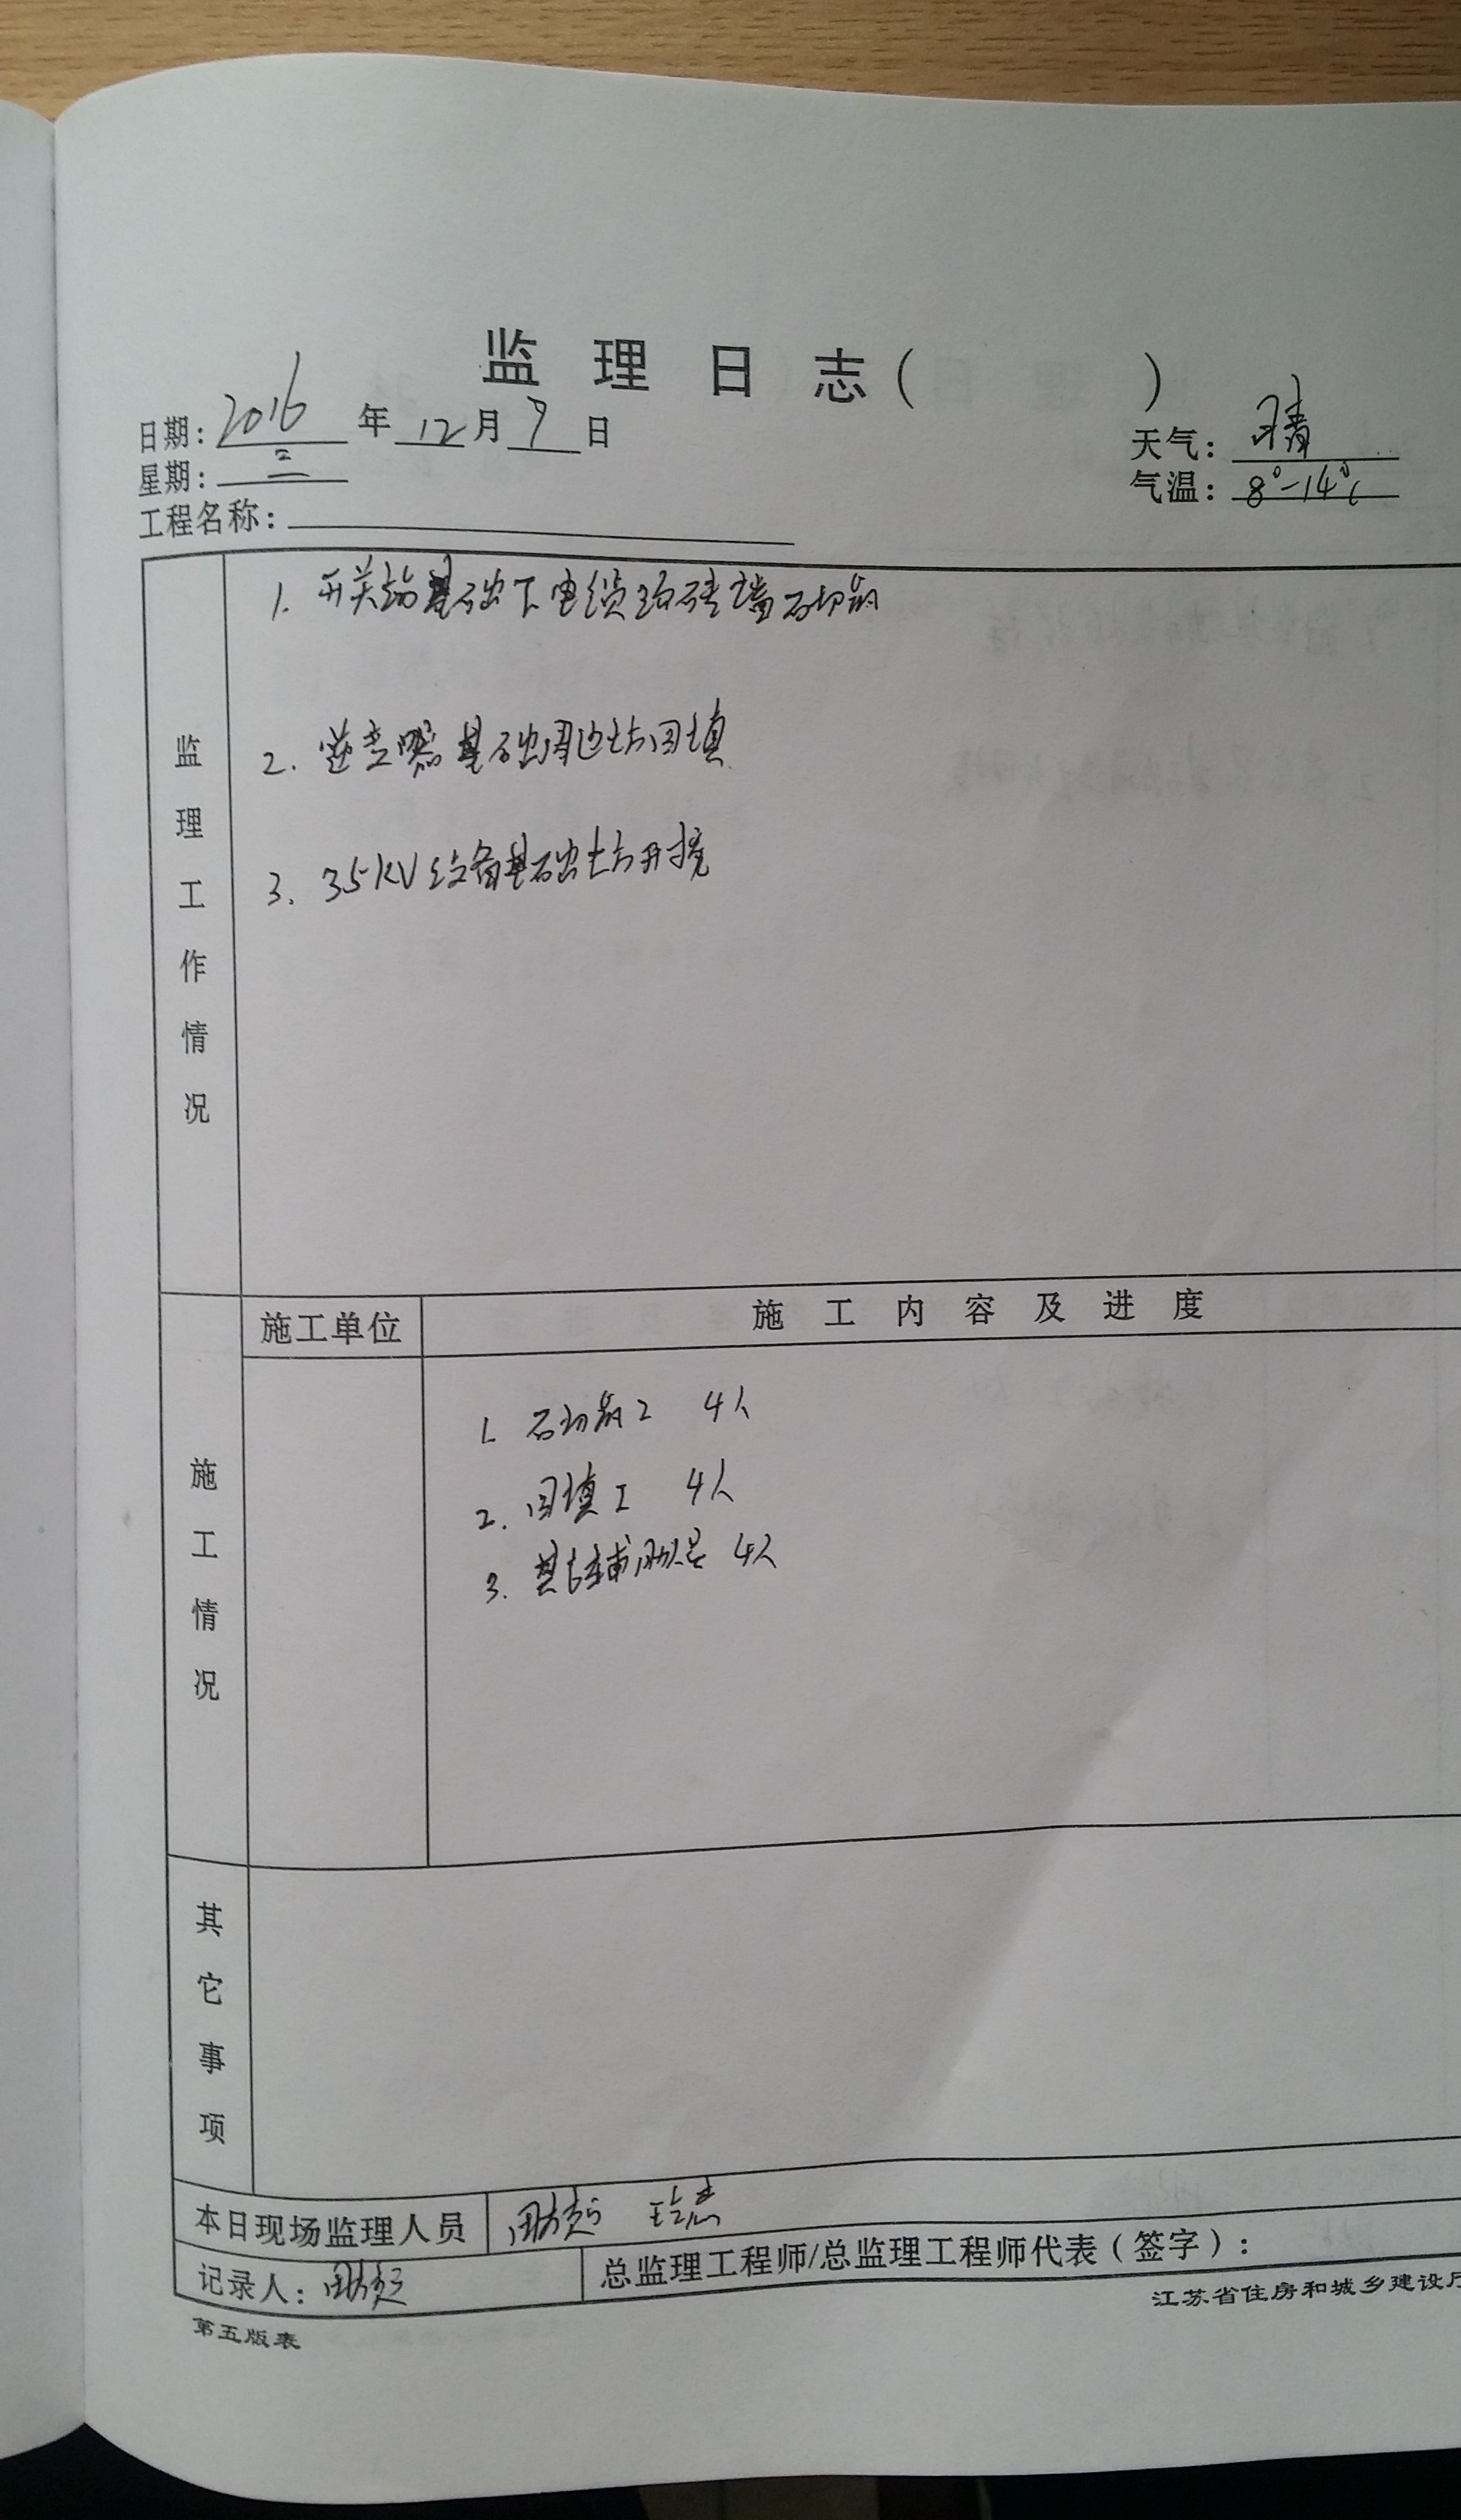 监理日志( )
日期: 2016 年 12 月 7 日
天气: 晴
星期: 三
气温: 8°-14℃
工程名称:
监理工作情况
1. 开关站基础下电缆沟砖墙砌筑
2. 逆变器基础周边土方回填
3. 35KV设备基础土方开挖
施工单位
施工内容及进度
施工情况
1. 砌筑工 4人
2. 回填工 4人
3. 其它辅助人员 4人
其它事项
本日现场监理人员
记录人:
总监理工程师/总监理工程师代表(签字):
第五版表
江苏省住房和城乡建设厅